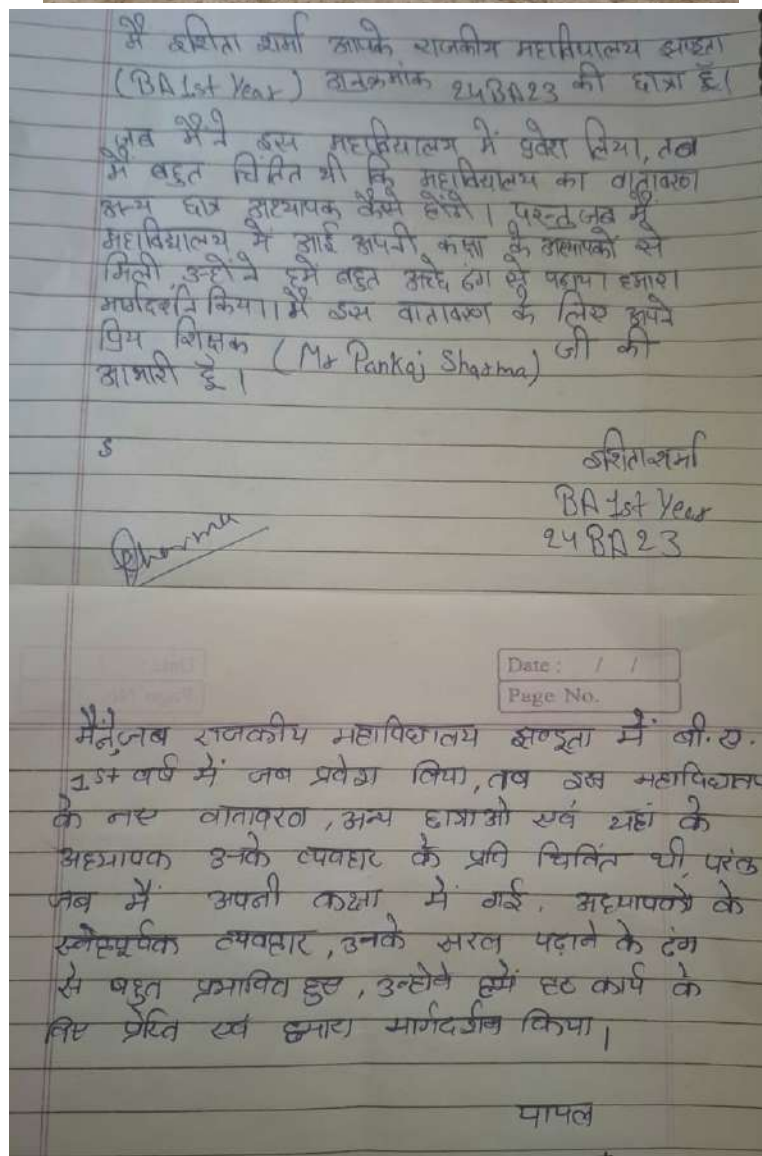 मै इशिता शर्मा आपके राजकीय महाविद्यालय झण्डुता
(BA 1st Year) अनुक्रमांक 24BA23 की छात्रा हूँ।
जब मैंने इस महाविद्यालय में प्रवेश लिया, तब
मै बहुत चिंतित थी कि महाविद्यालय का वातावरण
अन्य छात्र अध्यापक कैसे होंगे। परन्तु जब मैं
महाविद्यालय में आई अपनी कक्षा के अध्यापकों से
मिली उन्होंने हमें बहुत अच्छे ढंग से पढ़ाया हमारा
मार्गदर्शन किया। मै इस वातावरण के लिए अपने
प्रिय शिक्षक (Mr Pankaj Sharma) जी की
आभारी हूँ।
S
इशिता शर्मा
BA 1st Year
24BA23
Sharma
Date : / /
Page No.
मैंने, जब राजकीय महाविद्यालय झण्डूता में बी.ए.
1st वर्ष में जब प्रवेश लिया, तब इस महाविद्यालय
के नए वातावरण, अन्य छात्राओ एवं यहां के
अध्यापक उनके व्यवहार के प्रति चिंतित थी, परंतु
जब मैं अपनी कक्षा में गई, अध्यापकों के
स्नेहपूर्वक व्यवहार, उनके सरल पढ़ाने के ढंग
से बहुत प्रभावित हुए, उन्होने हमें हर कार्य के
लिए प्रेरित एवं हमारा मार्गदर्शन किया।
पायल